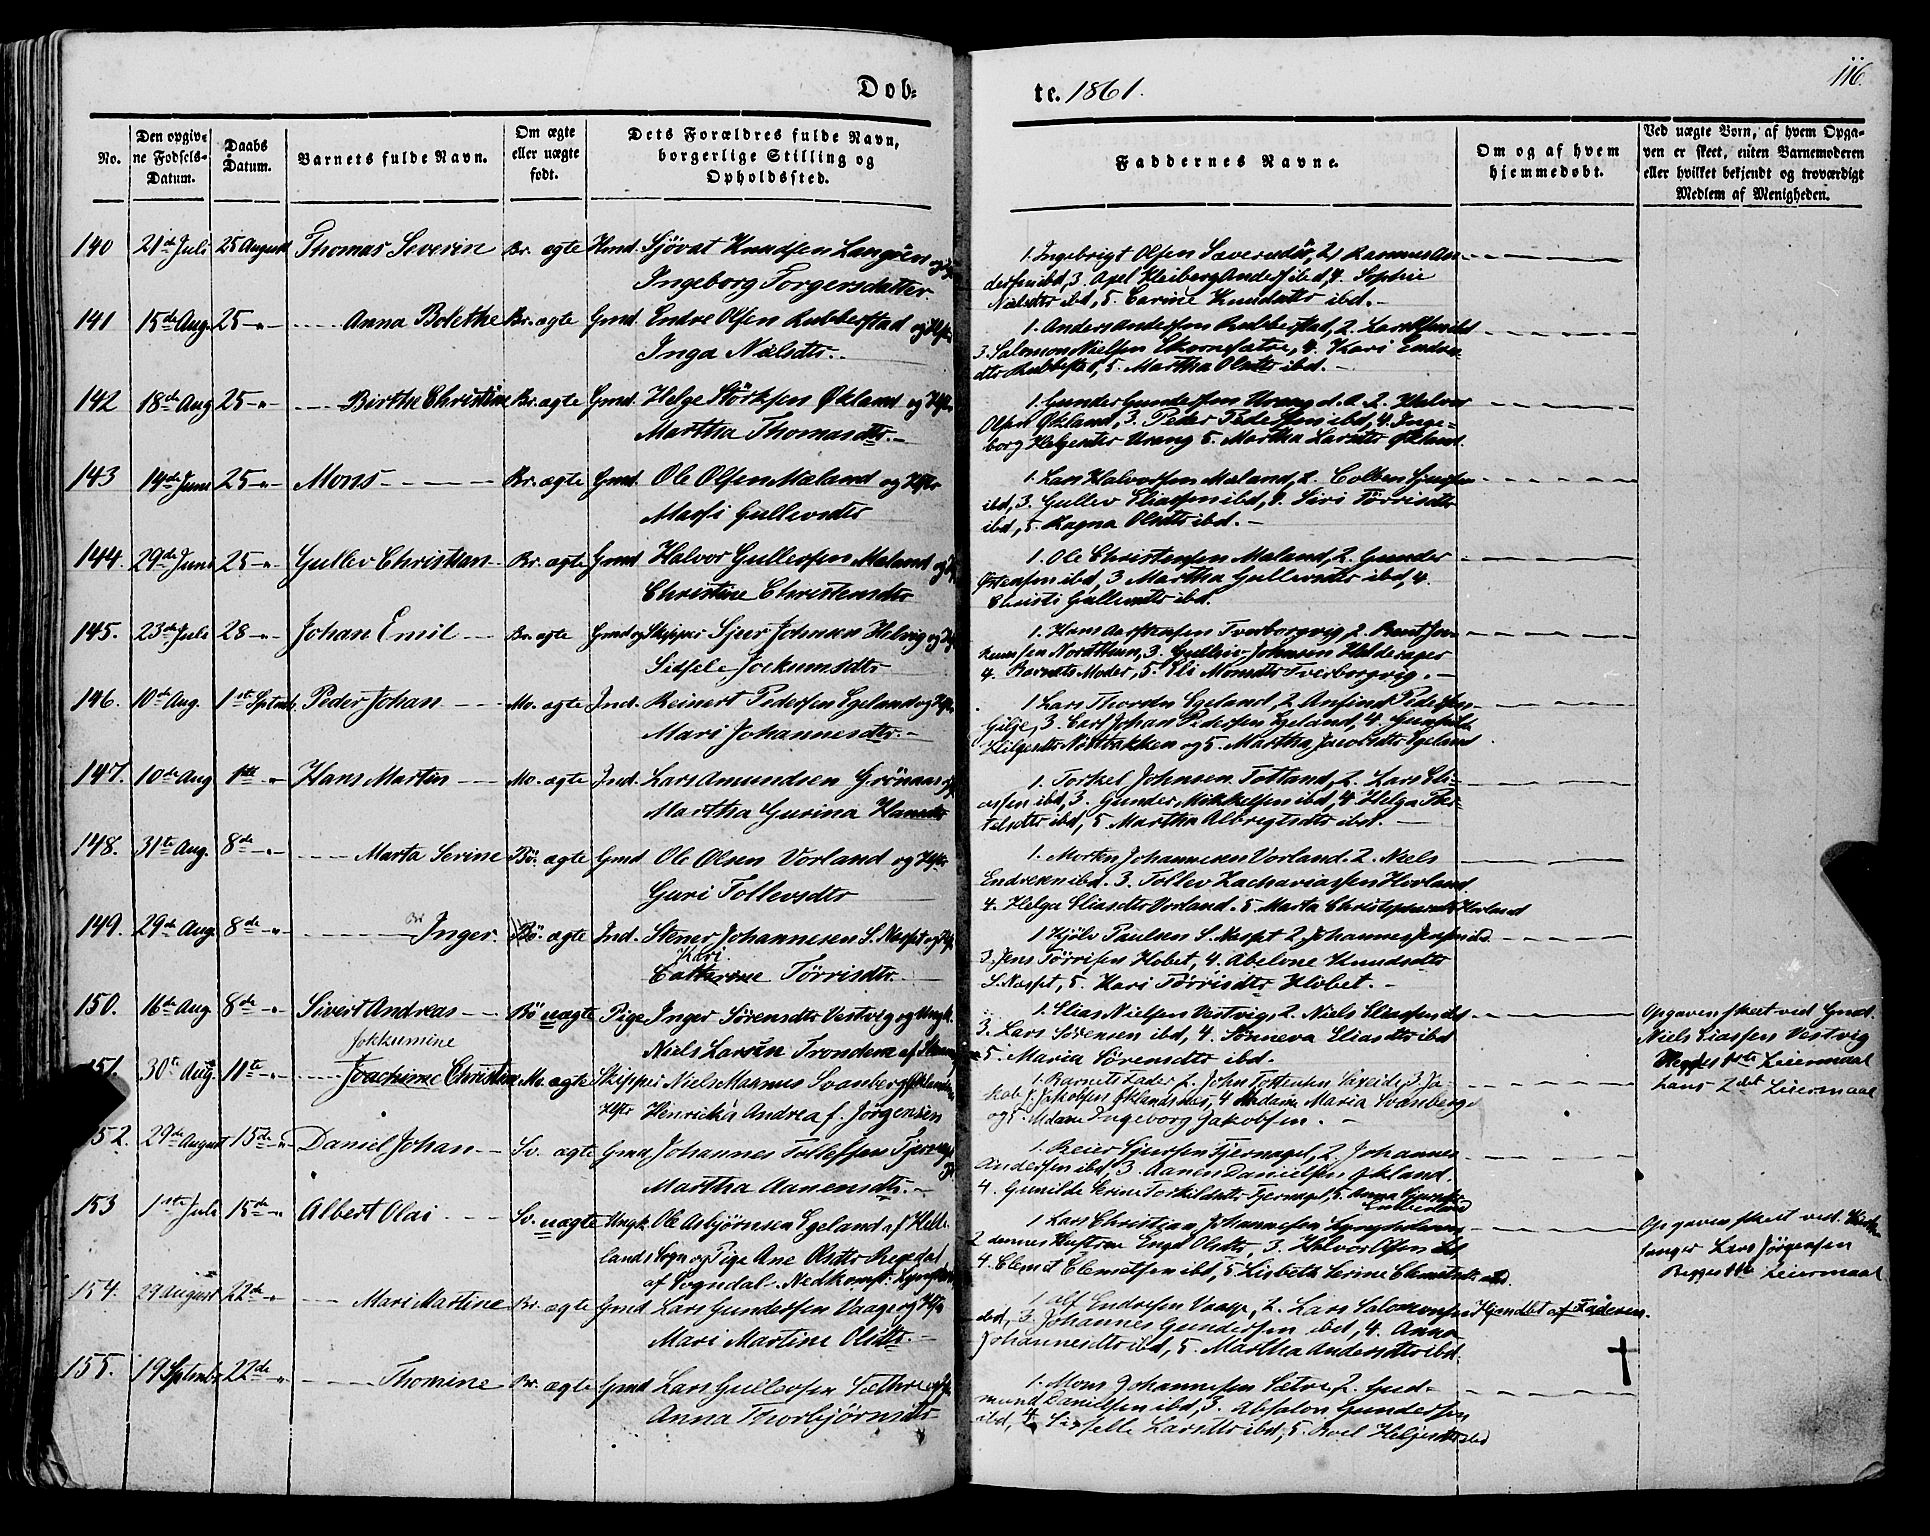 116.
Døb- te. 1861.
No.
Den opgiv-
ne Fødsels-
Datum.
Daabs
Datum.
Barnets fulde Navn.
Om ægte
eller uægte
født.
Dets Forældres fulde Navn,
borgerlige Stilling og
Opholdssted.
Faddernes Navne.
Om og af hvem
hjemmedøbt.
Ved uægte Børn, af hvem Opga-
ven er skeet, enten Barnemoderen
eller hvilket bekjendt og troværdigt
Medlem af Menigheden.
140 21de Juli 25 August Thomas Severin Br. ægte Hmd. Sjovat Knudsen Langøen og
Ingeborg Torgersdatter.
1. Ingebrigt Olsen 2, Rasmus An-
dersen ibd, 3. Axel Kleiberg Anders ibd, 4. Sophie
Nielsdtr ibd, 5. Carine Knudsdtr ibd.
141 15de Aug. 25 -"- Anna Bolethe Br. ægte Gmd. Endre Olsen Rubbestad og Hstr
Inga Nielsdtr.
1. Anders Andersen Rubbestad, 2. Lars Olsen ibd
3. Salomon Nielsen Ekornesætre, 4. Kari Endre-
dtr Rubbestad, 5. Martha Olsdtr ibd.
142 18de Aug 25 -"- Birthe Christine Br. ægte Gmd. Helge Størksen Økland og Hstr
Martha Thomasdtr.
1. Gunder Gundersen Urang d. a. 2. Halvor
Olsen Økland, 3. Peder Pedersen ibd, 4. Inge-
borg Helgesdtr Urang 5. Martha Larsdtr Økland.
143 14de Juni 25 -"- Mons Br. ægte Gmd. Ole Olsen Maland og Hstr
Massi Gullevsdtr
1. Lars Halvorsen Maland, 2. Colben
ibd, 3. Gullev Eliassen ibd, 4. Siri Tørrisdtr
ibd, 5. Ragna Olsdtr ibd.
144. 29de Juni 25 -"- Gullev Christian Br. ægte Gmd Halvor Gullevsen Maland og
Christine Christensdtr
1. Ole Christensen Maland, 2. Gunder
Østensen ibd, 3 Martha Gullevsdtr ibd, 4.
Christi Gullevsdtr ibd.
145. 23de Juli 28 -"- Johan Emil Br. ægte Gmd og Skipper Sjur Johnsen Helvig og
Sidsele Jockumsdtr
1. Hans Tverborgvig, 2. Bent
Nordthun, 3. Gullev Johnsen Halderager
4. Barnets Moder, 5. Eli Monsdtr Tverborgvig.
146. 10de Aug. 1ste Septemb. Peder Johan Mo. ægte Ind. Reinert Pedersen Egeland og Hstr
Mari Johannesdtr.
1 Lars Thorsen Egeland, 2 Anfind Pedersen
Gilje, 3 Carl Johan Pedersen Egeland, 4.
Helgesdtr Nordbakken og 5. Martha Jacobsdtr Egeland
147. 10de Aug 1ste -"- Hans Martin Mo. ægte Ind. Lars Amundsen Grønaas og
Martha Gurina Hansdtr
1. Torkel Johnsen Totland, 2. Lars Eli-
assen ibd, 3. Gunder Mikkelsen ibd, 4. Helga Tor-
kelsdtr ibd, 5. Martha Albrigtsdtr ibd.
148. 31te Aug. 8de -"- Marta Serine Bö. ægte Gmd Ole Olsen Vorland og Hstr
Guri Tollevsdtr
1. Morten Johannesen Vorland. 2. Niels
Endresen ibd. 3. Tollev Zachariassen Hovland
4. Helga Eliasdtr Vorland. 5. Marta Hovland
149. 29de Aug. 8de -"- Br Inger. Bö. ægte Ind. Stener Johannesen S. Næsset og
Kari
Catherine Tørrisdtr.
1 Kjöln Paulsen S. Næsset 2 Johannes
3. Jens Tørrisen Hobet, 4. Abelone Knudsdtr
S. Næsset, 5. Kari Tørrisdtr Hobet.
150. 16de Aug. 8de -"- Sivert Andreas Bö uægte Pige Inger Sørensdtr Vestvig og Ungk.
Niels Larsen
1. Elias Nielsen Vestvig, 2. Niels Eliassen ibd
3. Lars Sørensen ibd, 4. Sønneva Eliasdtr ibd
5. Maria Sørensdtr ibd.
Opgaven skeet ved Gmd.
Niels Eliassen Vestvig
Begges 1ste Leiermaal
Hans 2det Leiermaal
Jokkumine
151. 30te Aug. 11te -"- Joachime Christine Mo. ægte Skipper Niels Magnus Svanberg
Hstr Henrikka Andrea f. Jørgensen
1. Barnets Fader, 2. John Tostensen Sæveide, 3 Ja-
kob J. Jakobsen, 4 Madame Maria Svanberg
og 5. Mdme Ingeborg Jakobsen.
152. 29de August 15de -"- Daniel Johan Sv. ægte Gmd Johannes Tollefsen Tjernagel
Martha Aanensdtr.
1. Reier Sjursen Tjernagel, 2. Johannes
Andersen ibd, 3. Aanen Danielsen Økland.
4. Gunilde Serine Torkildsdtr Tjernagel, 5. Anna
153 1ste Juli 15de -"- Albert Olai Sv. uægte Ungk. Ole Asbjørnsen Egeland af Hel-
lands Sogn og Pige Ane Olsdtr
af Sogndal.
1 Lars Christian Johannesen
2 dennes Hustrue Engel Olsdtr, 3. Halvor Olsen ibd
4. Clemet Clemetsen ibd, 5 Lisbeth Serine Clemetsdtr ibd.
Opgaven skeet ved Kirke-
sanger Lars Jørgensen
Begges 1ste Leiermaal
154. 29 August 22de -"- Mari Martine Br. ægte Gmd Lars Gundersen Vaage og Hstr
Mari Martine Olsdtr.
1 Alf Endresen Vaage, 2. Lars Salomonsen
ibd, 3. Johannes Gundersen ibd, 4. Anna
Johannesdtr ibd, 5. Martha Andersdtr ibd.
Hjemdbt af Faderen.
155. 19 Septembr 22de -"- Thomine Br. ægte Gmd Lars Gullevsen Sæthre og
Anna Thorbjørnsdtr
1. Mons Johannesen Sætre, 2. Gud-
mund Danielsen ibd, 3. Absalon Gundersen
ibd, 4. Sisselle Larsdtr ibd, 5. Roel Helgesdtr ibd